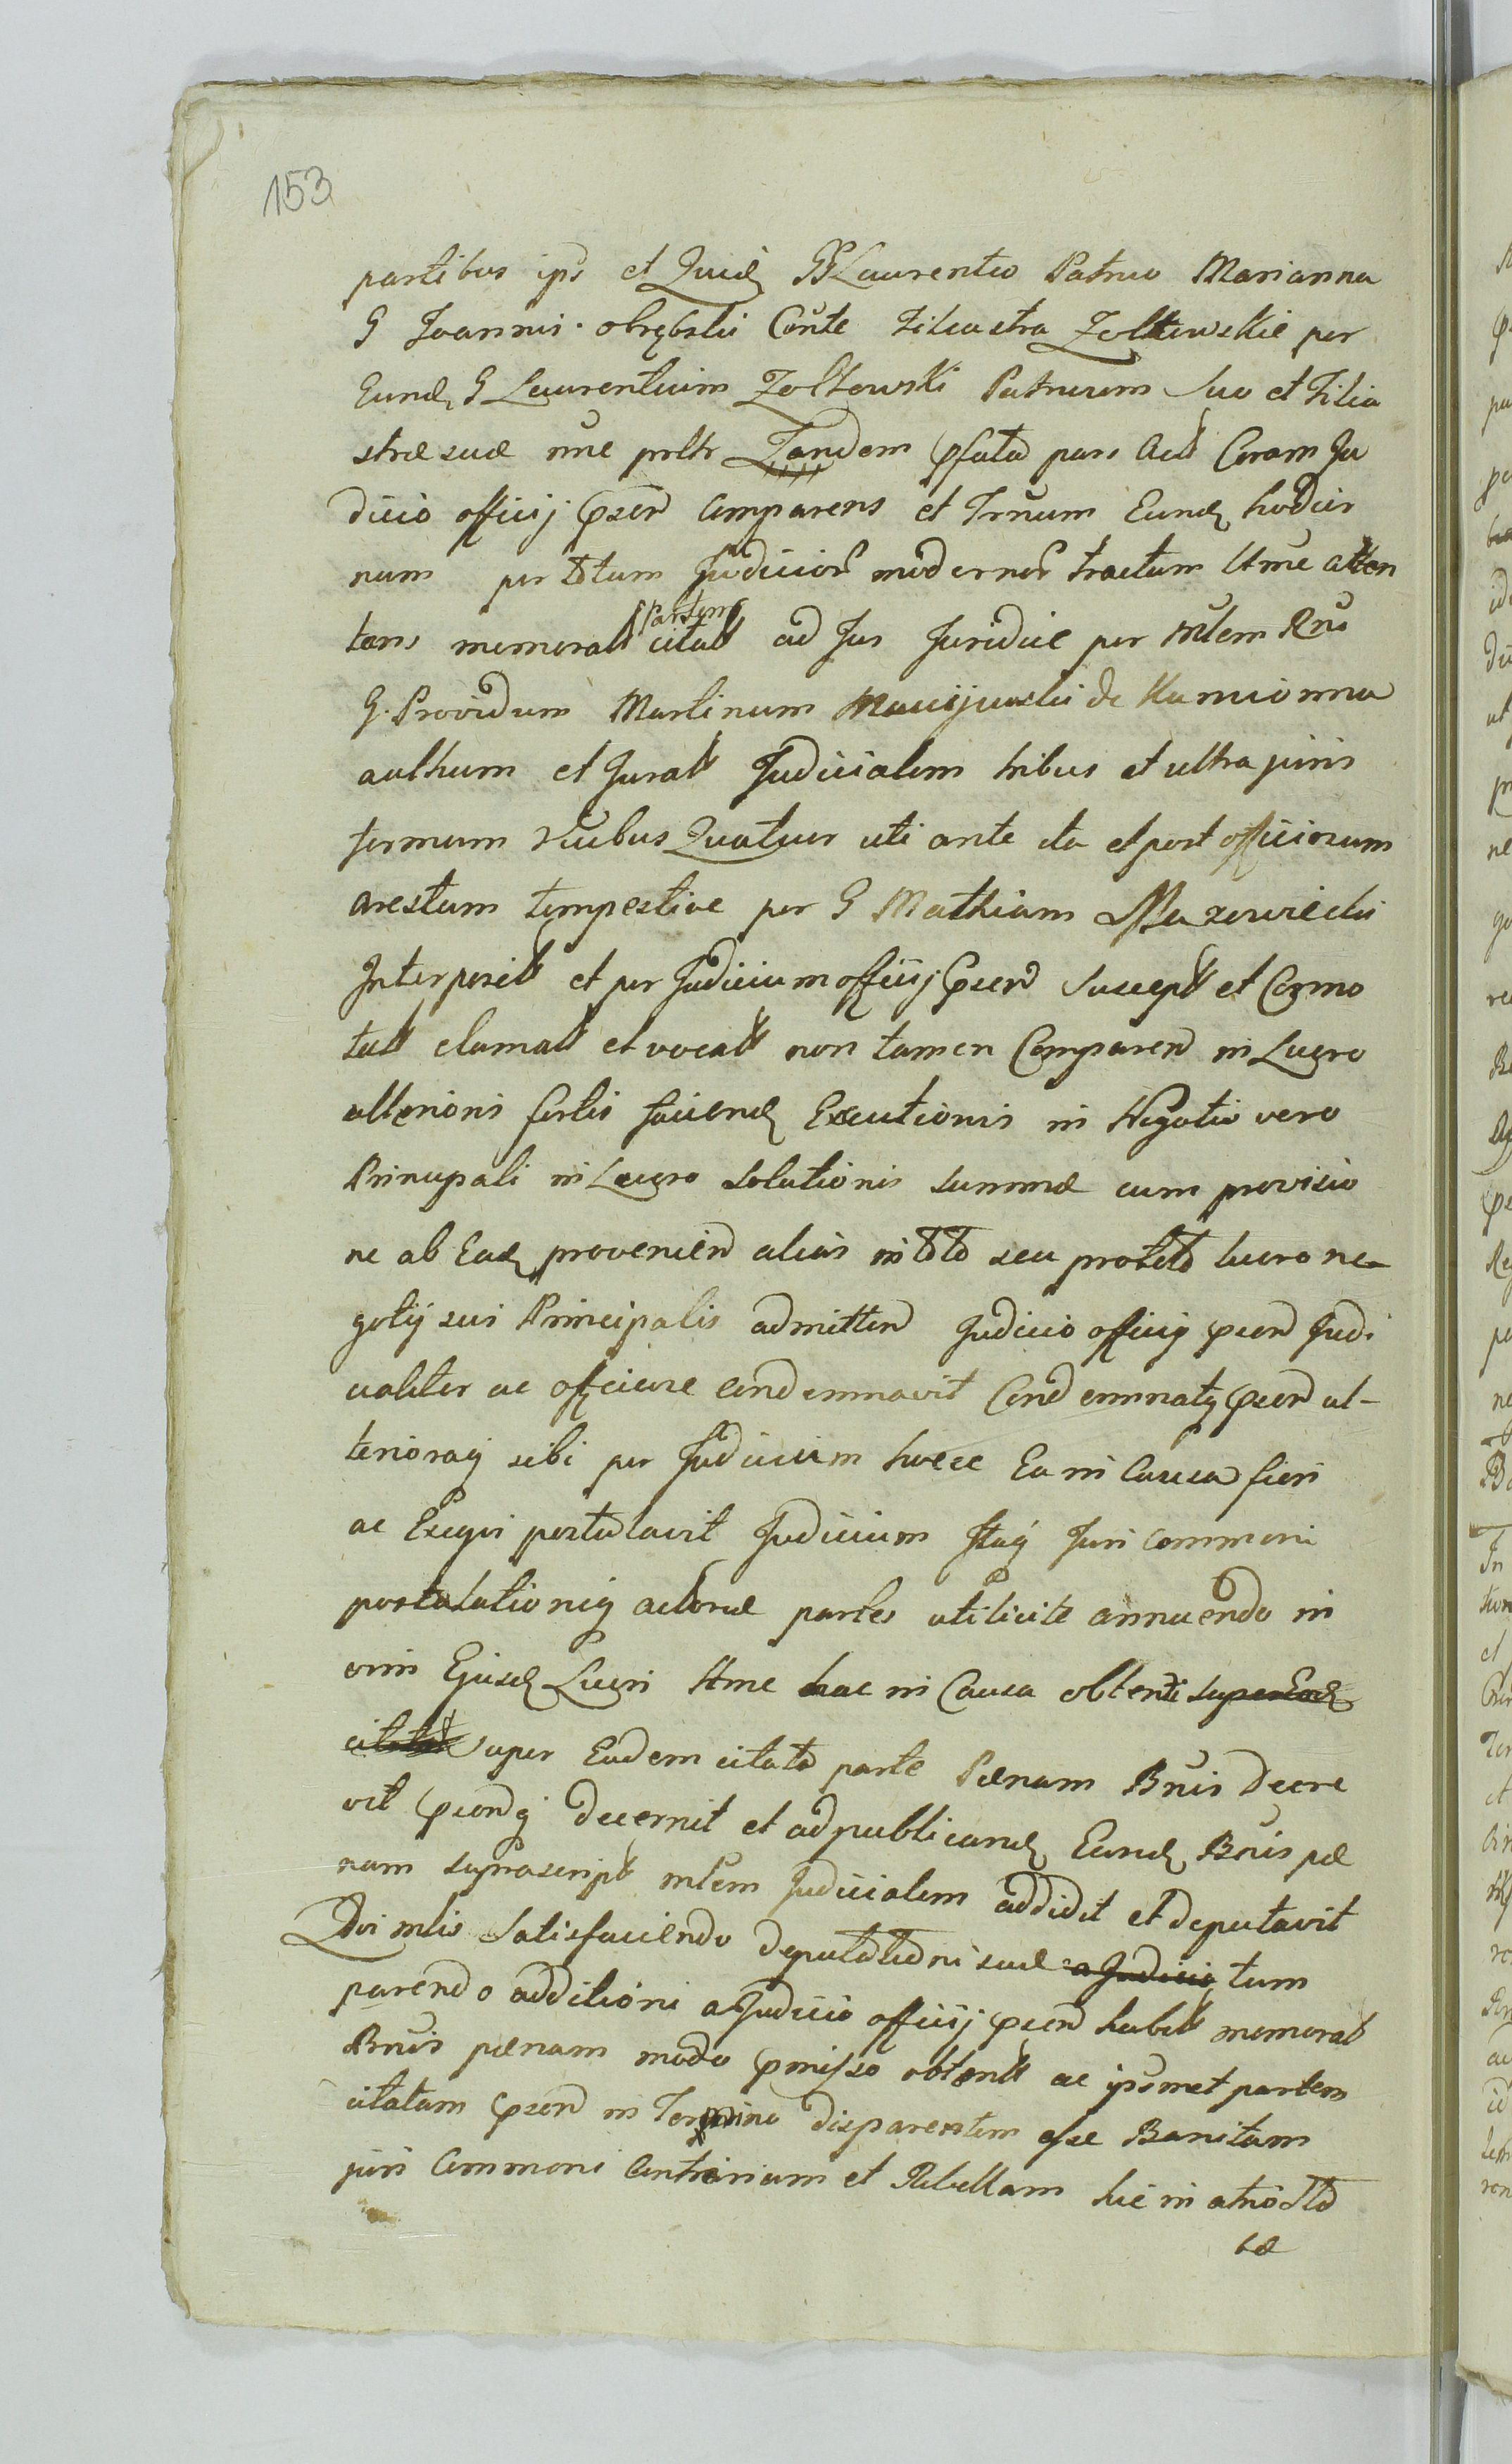 153
partibus ips et Quid GG Laurentio Patruo Marianna
G Joannis ObrębskiConte filiastra Zołtowskie per
Eund G Laurentium Zołtowski Patruum suo et Filia
stræ suæ nne prltr Tandem Psata pars Act Coram Ju
dicio officij Psen comparens et Trnum Eund hodier
num per totum Judicior modernor tractum ltme atten
tans memorat partem citat ad Jus Juridice per mlem Rno
G. Providum Martinum Maciejewski de Kamionna
authum et Jurat Judicialem tribus et ultra juris
formam vicibus Quatuor uti ante ita et post officiosum
arestum tempestive per G Mathiam Mazowiecki
Interposit et per Judicium officij Psen suscept et Commo
tat clamat et vocat non tamen Comparen in Lucro
ulterioris fortis faciend Executionis in Negotio vero
Principali in Lucro solutionis summæ cum provisio
ne ab Ead provenien alias in toto seu prototo lucro ne
gotij sui Principalis admitten Judicio officij psen Judi
cialiter ac officiose condemnavit Condemnatq Psen ul-
terioraq sibi per Judicium hocce Ea in Causa fieri
ac Exequi postulavit Judicium Itaq Juri communi
postulationiq actoreæ partes utilicite annuendo in
vim Ejusd Lucri ltme hac in Causa obtenti super Ead
citata super Eadem citata parte Pænam Bnis decre
vit psendq decernit et ad publicand Eand Bnis pæ
nam suprascript mlem Judicialem addidit et deputavit
Qui mlis satisfaciendo deputationi suæ a Judicio tum
parendo additioni a Judicio officij psen habit memorat
Bnis pænam modo pmisso obtent ac ipsmet partem
citatam psen in Termino disparentem esse Banitam
juri Communi Contrariam et Rebellam hic in atrio
bæ